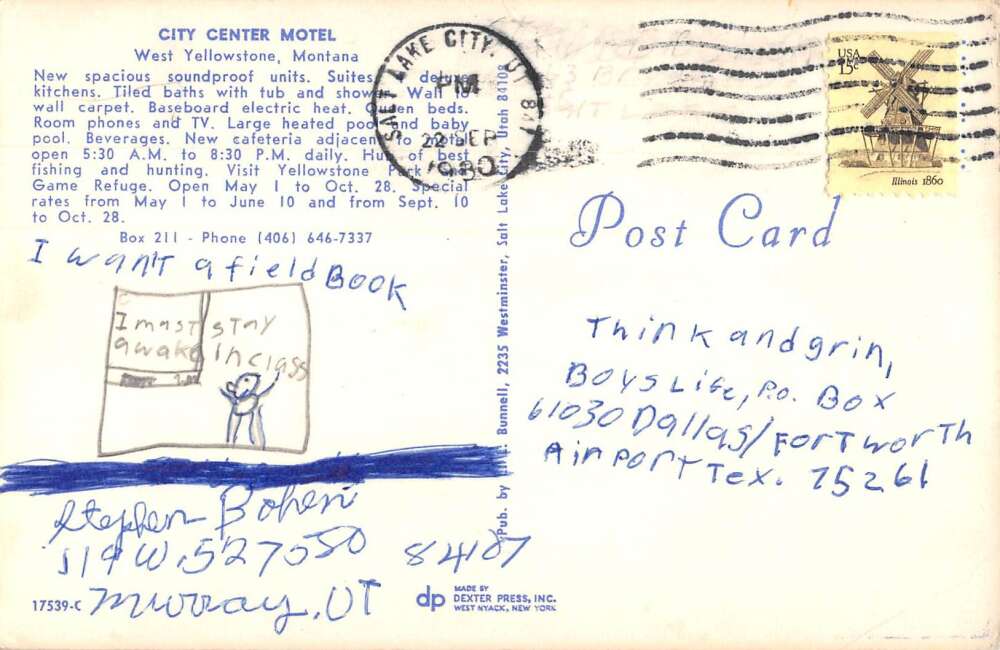 CITY CENTER MOTEL
West Yellowstone, Montana
New spacious soundproof units. Suites, deluxe
kitchens. Tiled baths with tub and shower. Wall to
wall carpet. Baseboard electric heat. Queen beds.
Room phones and TV. Large heated pool and baby
pool. Beverages. New cafeteria adjacent to motel
open 5:30 A.M. to 8:30 P.M. daily. Hub of best
fishing and hunting. Visit Yellowstone Park and
Game Refuge. Open May 1 to Oct. 28. Special
rates from May 1 to June 10 and from Sept. 10
to Oct. 28.
Box 211 - Phone (406) 646-7337
I want a field BOOK
I must stay
awake in class
Stephen
84107
Murray, UT
17539-C
dp
MADE BY
DEXTER PRESS, INC.
WEST NYACK, NEW YORK
Bunnell, 2235 Westminster, Salt Lake City, Utah 84108
SALT LAKE CITY, UT
PM
22 SEP
1980
USA
15c
Illinois 1860
Post Card
Think and grin,
Boys Life, P.O. Box
61030 Dallas/Fort Worth
Airport Tex. 75261